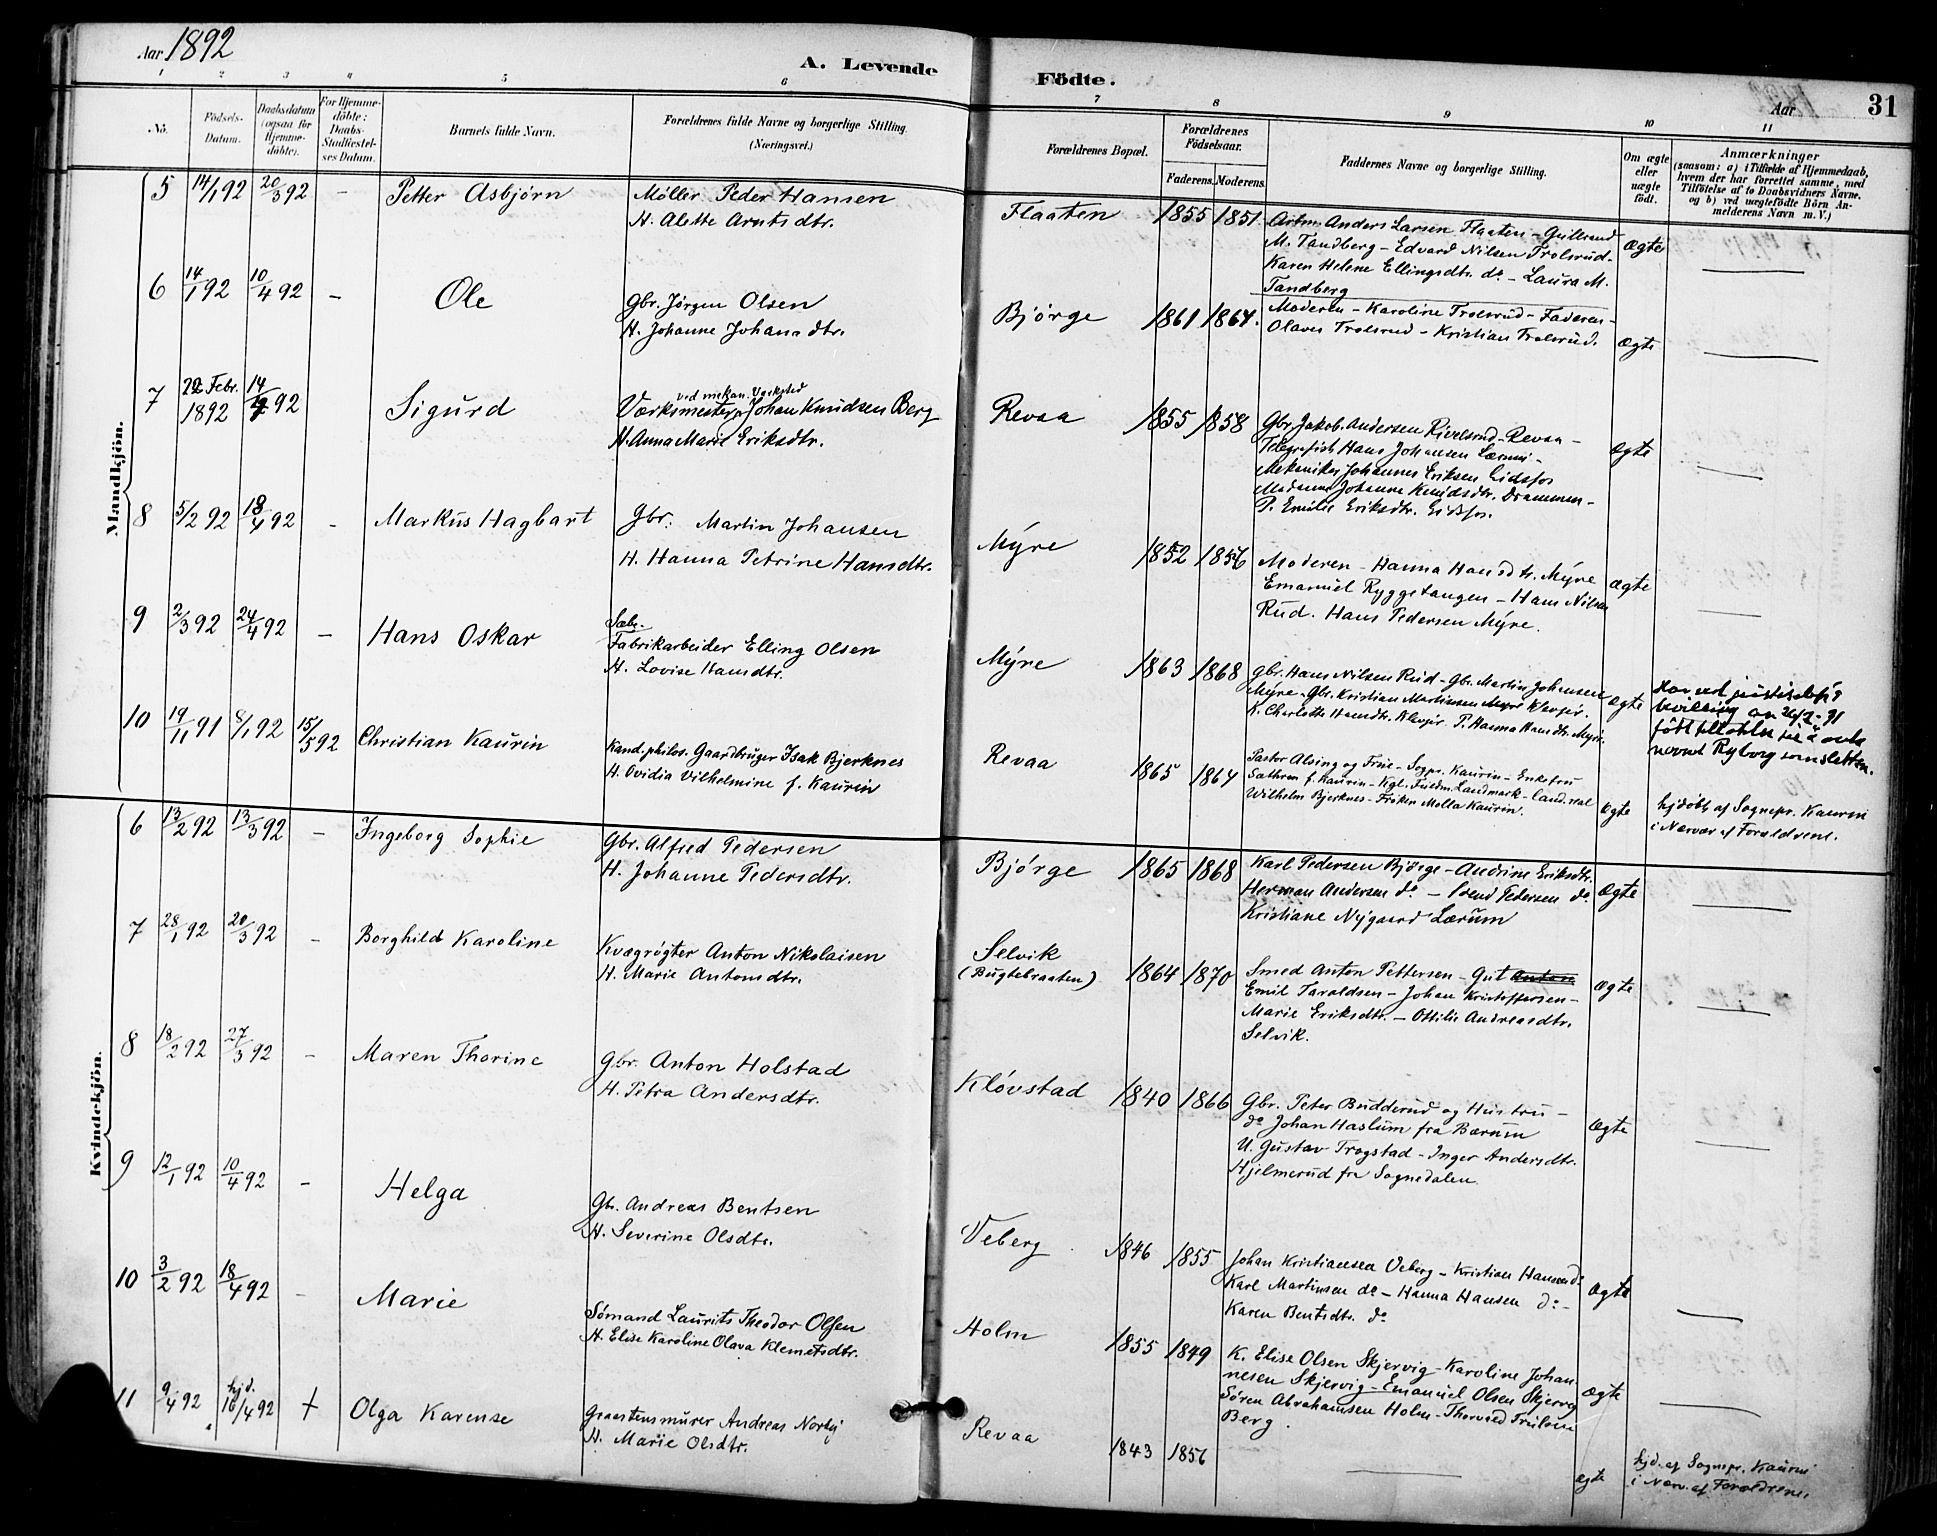 Aar 1892
A. Levende Födte.
Aar 31
1 2 3 4 5 6 7 8 9 10 11
No.
Födsels-Datum.
Daabsdatum (ogsaa for Hjemme-döbte).
For Hjemme-döbte: Daabs-Stadfæstel-ses Datum.
Barnets fulde Navn.
Forældrenes fulde Navne og borgerlige Stilling. (Næringsvei.)
Forældrenes Bopæl.
Forældrenes Födselsaar.
Faderens. Moderens.
Faddernes Navne og borgerlige Stilling.
Om ægte eller uægte födt.
Anmærkninger
(saasom: a) i Tilfælde af Hjemmedaab,
hvem der har forrettet samme, med
Tilföielse af to Daabsvidners Navne,
og b) ved uægtefödte Börn An-
melderens Navn m. V.)
Mandkjön.
5 14/1 92 20/3 92 – Petter Asbjörn
Møller Peder Hansen
H. Alette Arntsdtr.
Flaaten 1855 1851
Arbm. Anders Larsen Flaaten – Gulbrand
M. Tandberg – Edvard Nilsen Trolsrud –
Karen Helene Ellingsdtr. do – Laura M.
Tandberg
Ægte
6 14/1 92 10/4 92 – Ole
Gbr. Jörgen Olsen
H. Johanne Johansdtr.
Bjørge 1861 1864.
Moderen – Karoline Trolsrud – Faderen –
Olaves Trolsrud – Kristian Trolsrud.
Ægte
7 22 Febr. 1892 14/4 92 Sigurd
ved mekan. Værksted
Værksmester Johan Knudsen Berg
H. Anna Marie Eriksdtr.
Revaa 1855 1858
Gbr. Jakob Andersen Rivelsrud – Revaa –
Telegrafist Hans Johansen Lærum –
Mekaniker Johannes Eriksen Eidsfos
Madame Johanne Knudsdtr. Drammen –
P. Emilie Eriksdtr. Eidsfos.
Ægte
8 5/2 92 18/4 92 – Markus Hagbart
Gbr. Martin Johansen
H. Hanna Petrine Hansdtr.
Mýre 1852 1856
Moderen – Hanna Hansdtr. Mýre
Emanuel Ryggetangen – Hans Nilsen
Rud. Hans Pedersen Mýre.
Ægte
9 2/3 92 24/4 92 – Hans Oskar
Sæbr.
Fabrikarbeider Elling Olsen
H. Lovise Hansdtr.
Mýre 1863 1868
Gbr. Hans Nilsen Rud – Gbr. Martin Johansen
Mýre – Gbr. Kristian Martinsen Klevjer.
K. Charlotte Hansdtr. Klevjer. P. Hanna Hansdtr. Mýre.
Ægte
Har ved
bevilling av
født tillatelse til å
navnet Ryborg som slektsn.
10 19/11 91 8/1 92 15/5 92 Christian Kaurin
Kand. philos. Gaardbruger Isak Bjerknes
H. Ovidia Vilhelmine f. Kaurin
Revaa 1865 1864
Pastor Alving og Frue – Sogpr. Kaurin – Enkefru
Sæthren f. Kaurin – Kgl. Fuldm. Landmark – Cand. real
Wilhelm Bjerknes – Frøken Molla Kaurin.
Ægte
hjdøbt af Sognepr. Kaurin
i Nærvær af Forældrene.
Kvindekjön.
6 13/2 92 13/3 92 – Ingeborg Sophie
Gbr. Alfred Pedersen
H. Johanne Pedersdtr.
Bjørge 1865 1868
Karl Pedersen Bjørge – Andrine Eriksdtr.
Herman Andersen do – Svend Pedersen do.
Kristiane Nygaard Lærum
Ægte
7 28/1 92 20/3 92 – Borghild Karoline
Kvægrøgter Anton Nikolaisen
H. Marie Antonsdtr.
Selvik (Bugtebraaten) 1864 1870
Smed Anton Pettersen – Gut
Emil Taraldsen – Johan Kristoffersen –
Marie Eriksdtr. – Ottilie Andreasdtr.
Selvik.
Ægte
8 18/2 92 27/3 92 – Maren Thorine
Gbr. Anton Holstad
H. Petra Andersdtr.
Kløvstad 1840 1866
Gbr. Peter Budderud og Hustru –
do Johan Haslum fra Bærum
U. Gustav Trogstad – Inger Andersdtr.
Hjelmerud fra Sognedalen.
Ægte
9 12/1 92 10/4 92 – Helga
Gbr. Andreas Bentsen
H. Severine Olsdtr.
Veberg 1846 1855
Johan Kristiansen Veberg – Kristian Hansen do
Karl Martinsen do – Hanna Hansen do –
Karen Bentsdtr. do
Ægte
10 3/2 92 18/4 92 – Marie
Sømand Laurits Theodor Olsen
H. Elise Karoline Olava Klemetsdtr.
Holm 1855 1849
K. Elise Olsen Skjervig – Karoline Johan
nesen Skjervig – Emanuel Olsen Skjervig
Søren Abrahamsen Holm – Thorvald
Berg.
Ægte
11 9/4 92 hjd. 16/4 92 + Olga Karense
Graastensmurer Andreas Norby
H. Marie Olsdtr.
Revaa 1843 1856
ægte
hjd. af Sognepr. Kaurin
i Nærv. af Forældrene.